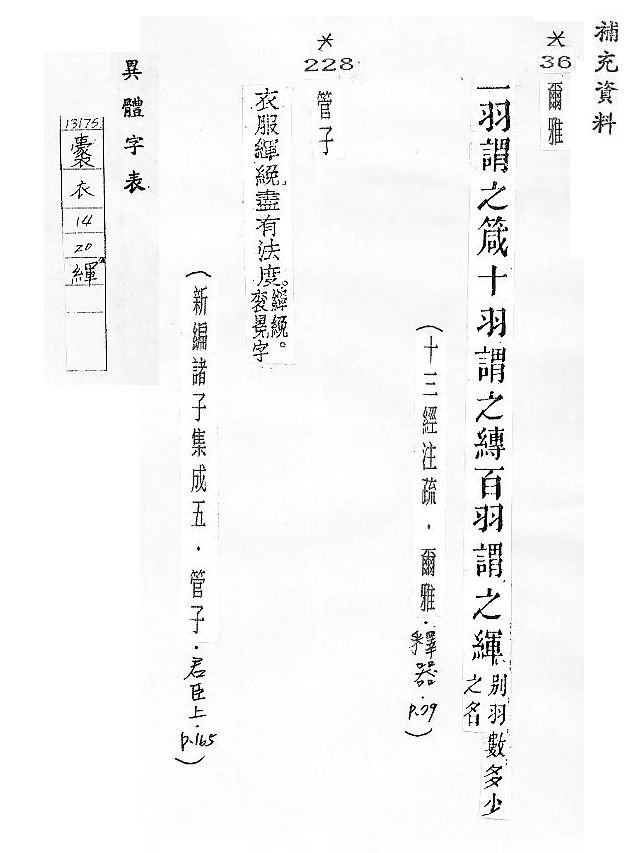 補充資料
*
36
爾雅
一羽謂之箴十羽謂之縳百羽謂之緷
別羽數多少
之名
(十三經注疏.爾雅.釋器.p.79)
*
228
管子
衣服緷絻盡有法度。
緷絻。
袞冕字
(新編諸子集成五.管子.君臣上.p.165)
異體字表
13175
衣
14
20
緷